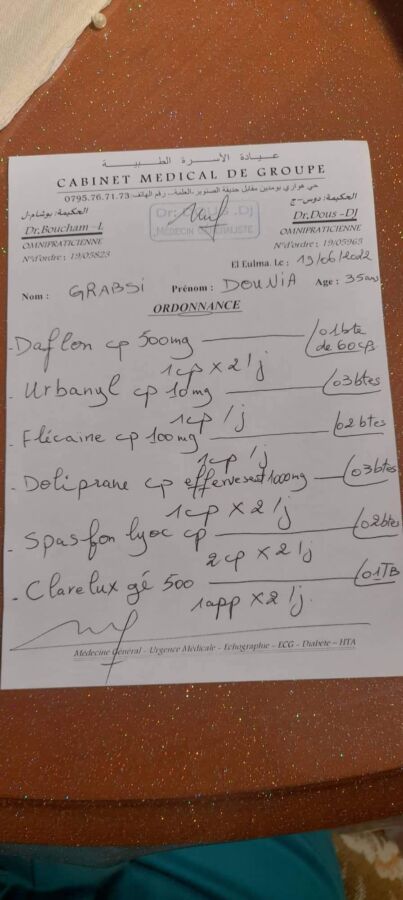 عيادة الأسرة الطبية
CABINET MEDICAL DE GROUPE
حي هواري بومدين مقابل حديقة الصنوبر-العلمة-. رقم الهاتف: 0795.76.71.73
الحكيمة: بوشام-ل
الحكيمة: دوس-ج
Dr.Boucham -L
Dr.Dous -DJ
OMNIPRATICIENNE
OMNIPRATICIENNE
N°d'ordre : 19/05823
N°d'ordre : 19/05965
Dr. Dous .DJ
MEDECIN GENERALISTE
El Eulma. Le : 19/06/2022
Nom : GRABSI Prénom : DOUNIA Age : 35ans
ORDONNANCE
- Daflon cp 500mg 01bte de 60cps
1cp x 2 / j
- Urbanyl cp 10mg 03btes
1cp / j
- Flécaine cp 100mg 02btes
1cp / j
- Doliprane cp effervesent 1000mg 03btes
1cp x 2 / j
- Spasfon lyoc cp 02btes
2cp x 2 / j
- Clarelux gé 500 01TB
1app x 2 / j.
Médecine Général - Urgence Médicale - Echographie - ECG - Diabète - HTA